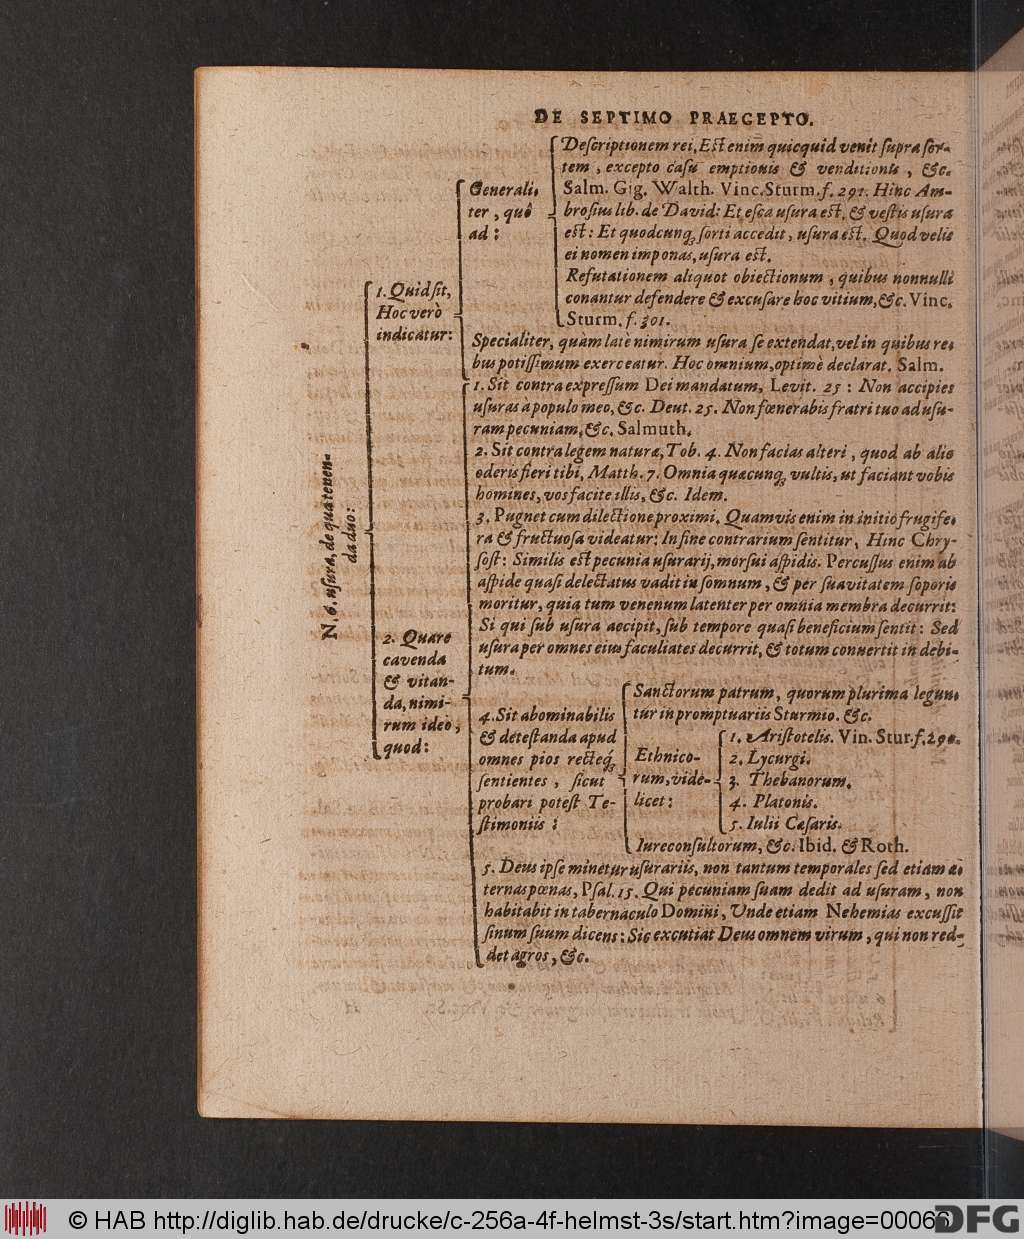 DE SEPTIMO PRAECEPTO.
N. 6. usura, de qua tenen-
da duo:
1. Quid sit,
Hoc verò
indicatur:
Generali-
ter, quô
ad:
Descriptionem rei, Est enim quicquid venit supra sor-
tem, excepto casu emptionis & venditionis, &c.
Salm. Gig. Walth. Vinc. Sturm. f. 291. Hinc Am-
brosius lib. de David: Et esca usura est, & vestis usura
est: Et quodcunq; sorti accedit, usura est. Quod velis
ei nomen imponas, usura est.
Refutationem aliquot obiectionum, quibus nonnulli
conantur defendere & excusare hoc vitium, &c. Vinc.
Sturm. f. 301.
Specialiter, quam late nimirum usura se extendat, vel in quibus re-
bus potissimum exerceatur. Hoc omnium, optimè declarat. Salm.
2. Quare
cavenda
& vitan-
da, nimi-
rum ideo,
quod:
1. Sit contra expressum Dei mandatum, Levit. 25: Non accipies
usuras à populo meo, &c. Deut. 25. Non fœnerabis fratri tuo ad usu-
ram pecuniam, &c. Salmuth.
2. Sit contra legem naturæ, Tob. 4. Non facias alteri, quod ab alio
oderis fieri tibi, Matth. 7. Omnia quæcunq; vultis, ut faciant vobis
homines, vos facite illis, &c. Idem.
3. Pugnet cum dilectione proximi. Quamvis enim in initio frugife-
ra & fructuosa videatur: In fine contrarium sentitur, Hinc Chry-
sost: Similis est pecunia usurarij, morsui aspidis. Percussus enim ab
aspide quasi delectatus vadit in somnum, & per suavitatem soporis
moritur, quia tum venenum latenter per omnia membra decurrit:
Si qui sub usura accipit, sub tempore quasi beneficium sentit: Sed
usura per omnes eius facultates decurrit, & totum convertit in debi-
tum.
4. Sit abominabilis
& detestanda apud
omnes pios recteq́;
sentientes, sicut
probari potest Te-
stimoniis:
Sanctorum patrum, quorum plurima legun-
tur in promptuariis Sturmio. &c.
Ethnico-
rum, vide-
licet:
1. Aristotelis. Vin. Stur. f. 290.
2. Lycurgi.
3. Thebanorum.
4. Platonis.
5. Iulii Cæsaris.
Iureconsultorum, &c. Ibid. & Roth.
5. Deus ipse minetur usurariis, non tantum temporales sed etiam æ-
ternas pœnas, Psal. 15. Qui pecuniam suam dedit ad usuram, non
habitabit in tabernaculo Domini, Unde etiam Nehemias excussit
sinum suum dicens: Sic excutiat Deus omnem virum, qui non red-
det agros, &c.
© HAB http://diglib.hab.de/drucke/c-256a-4f-helmst-3s/start.htm?image=00066
DFG